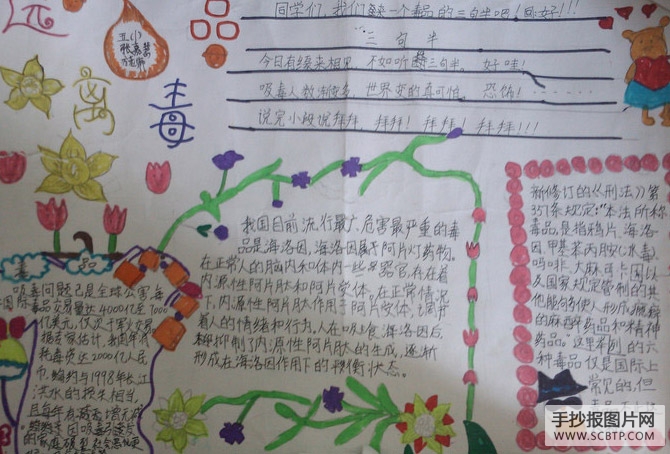 远
离
毒
品
五(1)
张嘉慧
同学们,我们来一个毒品的三句半吧!你好!!!
三 句 半
今日有缘来相见,不如听段三句半。 好哇!
吸毒人数渐变多,世界变的真可怕。 恐怖!
说完小段说拜拜,拜拜!拜拜!拜拜!!!
我国目前流行最广、危害最严重的毒
品是海洛因,海洛因属于阿片灯药物。
在正常人的脑内和体内一些器官,存在着
内源性阿片肽和阿片受体。在正常情况
下,内源性阿片肽作用于阿片受体,调节
着人的情绪和行为。人在吸食海洛因后,
抑制了内源性阿片肽的生成,逐渐
形成在海洛因作用下的平衡状态。
新修订的《刑法》第
357条规定:"本法所称
毒品,是指鸦片、海洛
因、甲基苯丙胺(冰毒)、
吗啡、大麻、可卡因以
及国家规定管制的其
他能够使人形成瘾癖
的麻醉药品和精神
药品。"这里的
种毒品仅是国际上
常见的,但
毒 品
吸毒问题已是全球公害,每
国际毒品交易量达4000亿至7000
亿美元,仅次于军火交易
据专家估计,我国每年消
耗毒资达2000亿人民
币,大约与1998年长江
洪水的损失相当,
手抄报图片网
WWW.SCBTP.COM